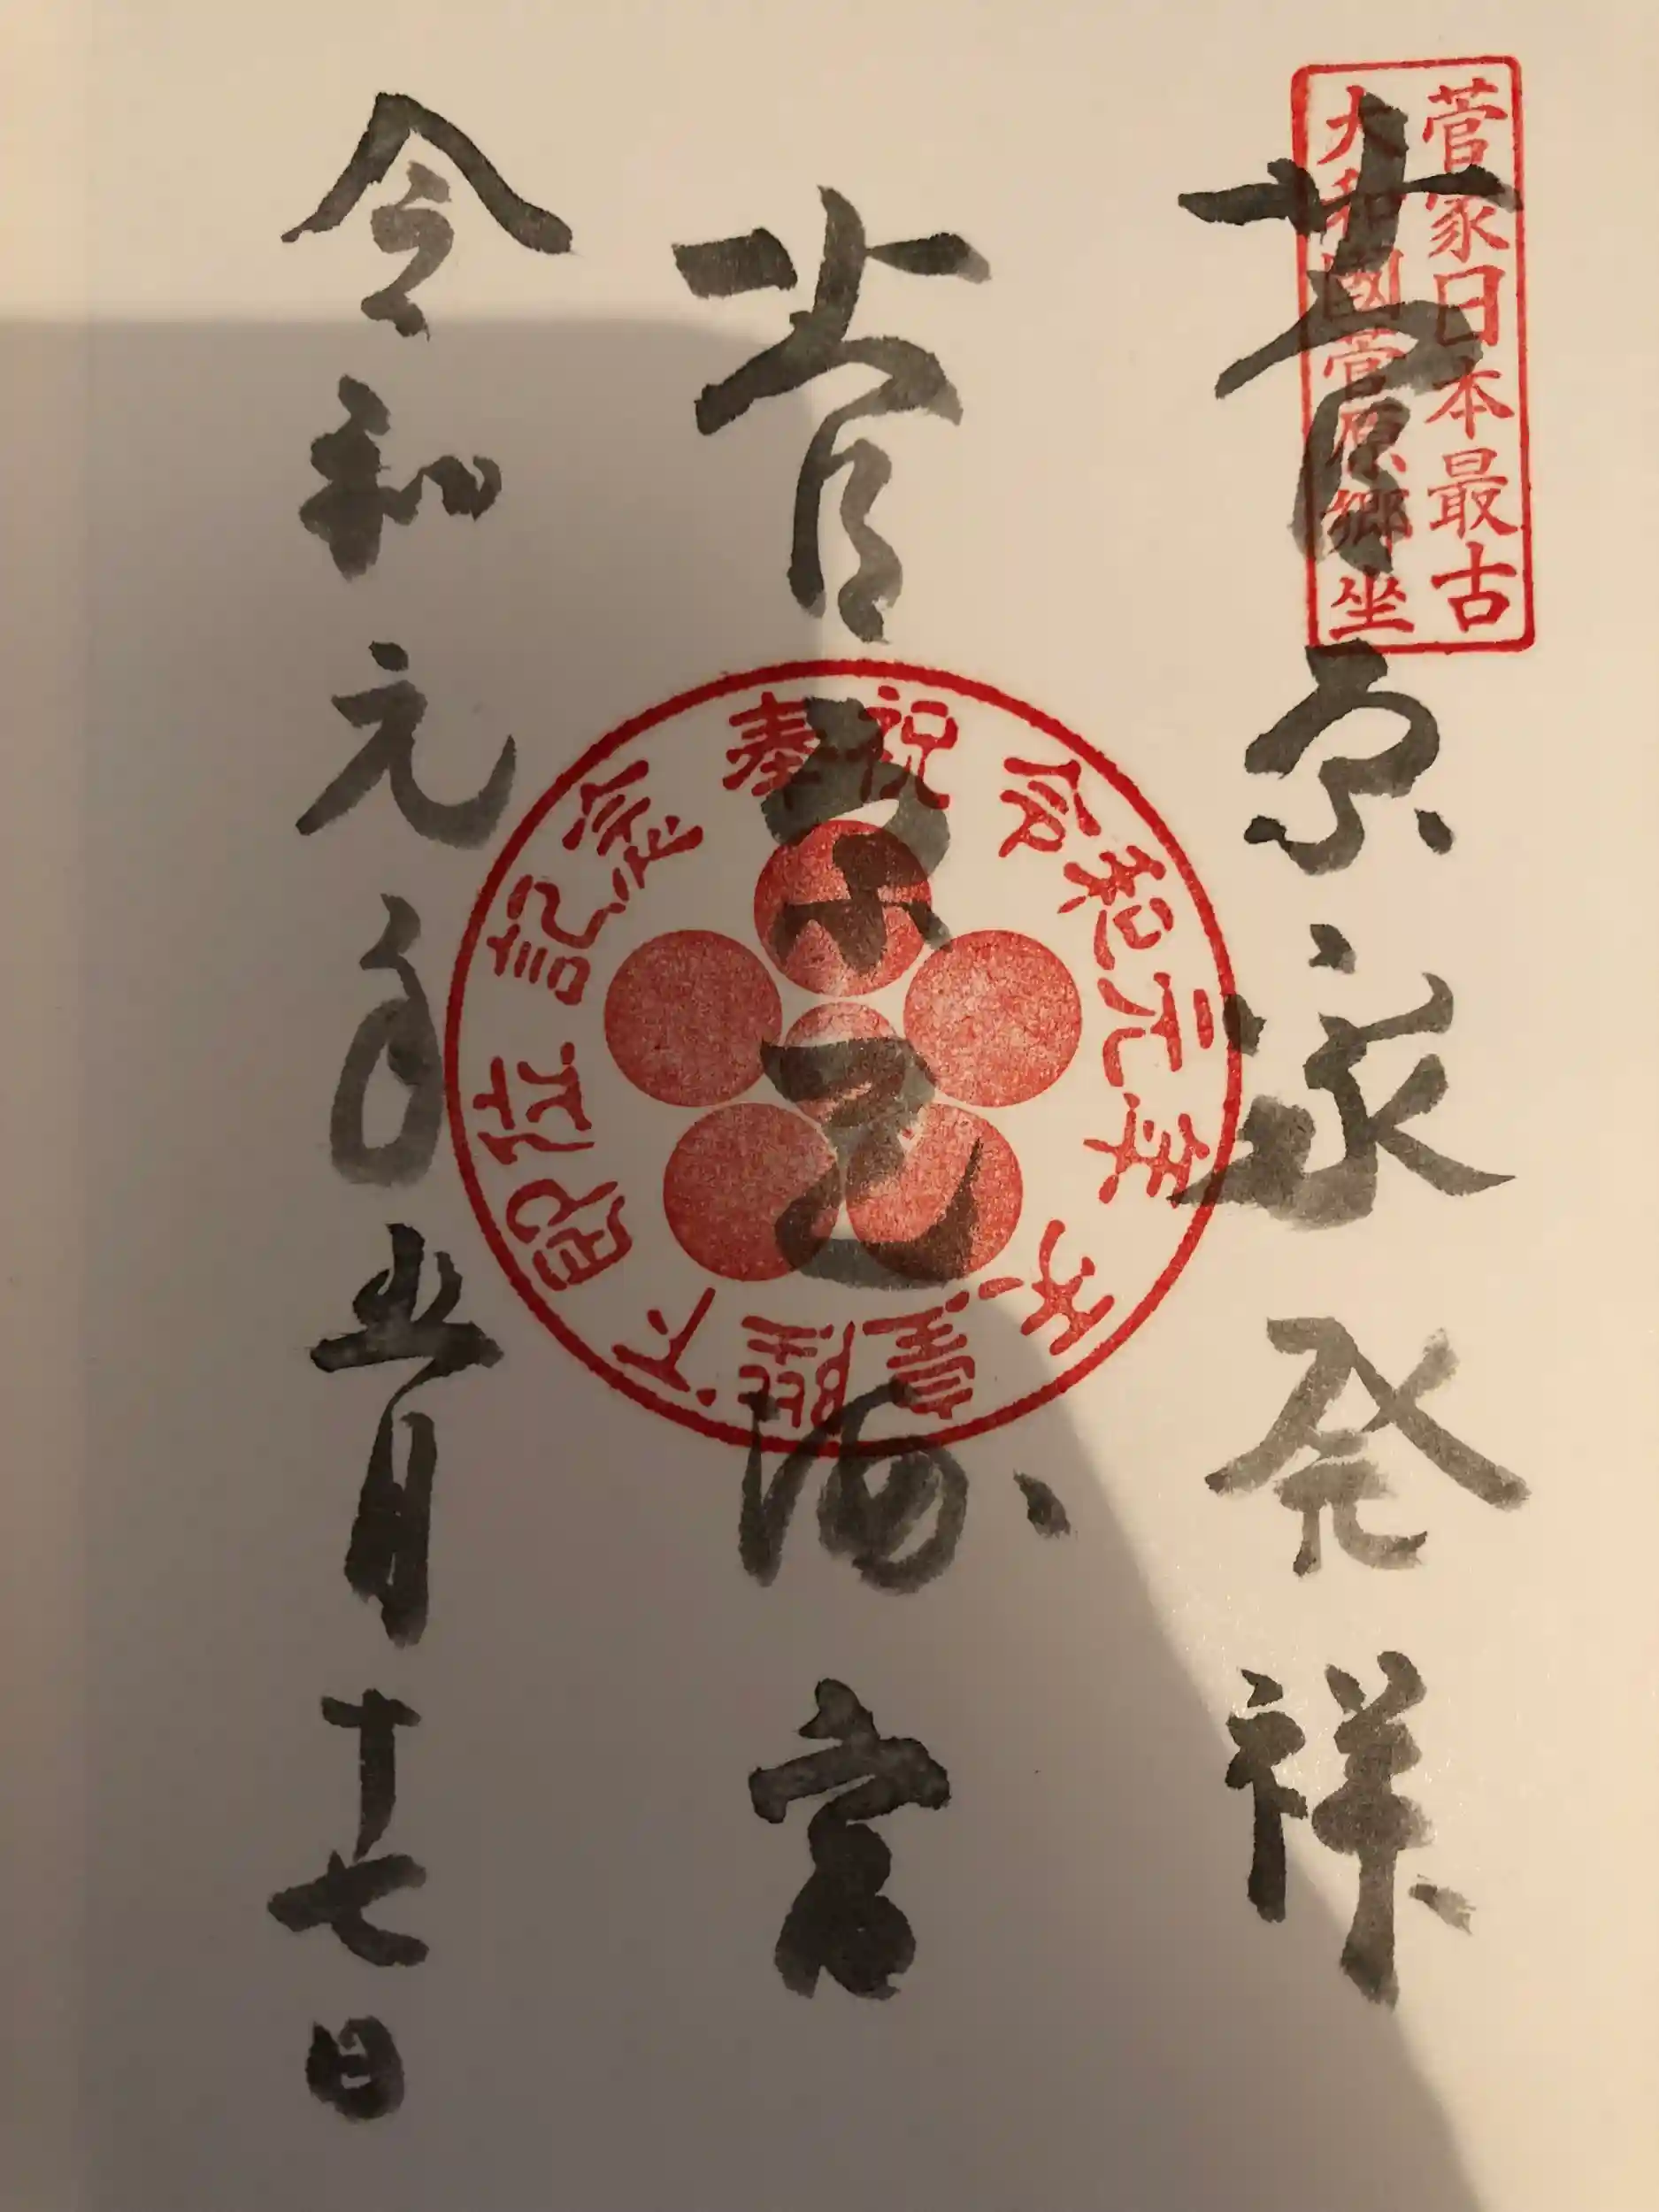 菅家日本最古
大和國菅原郷坐
菅原家発祥
菅原天満宮
奉祝 令和元年 天皇陛下 即位 記念
令和元年五月十七日